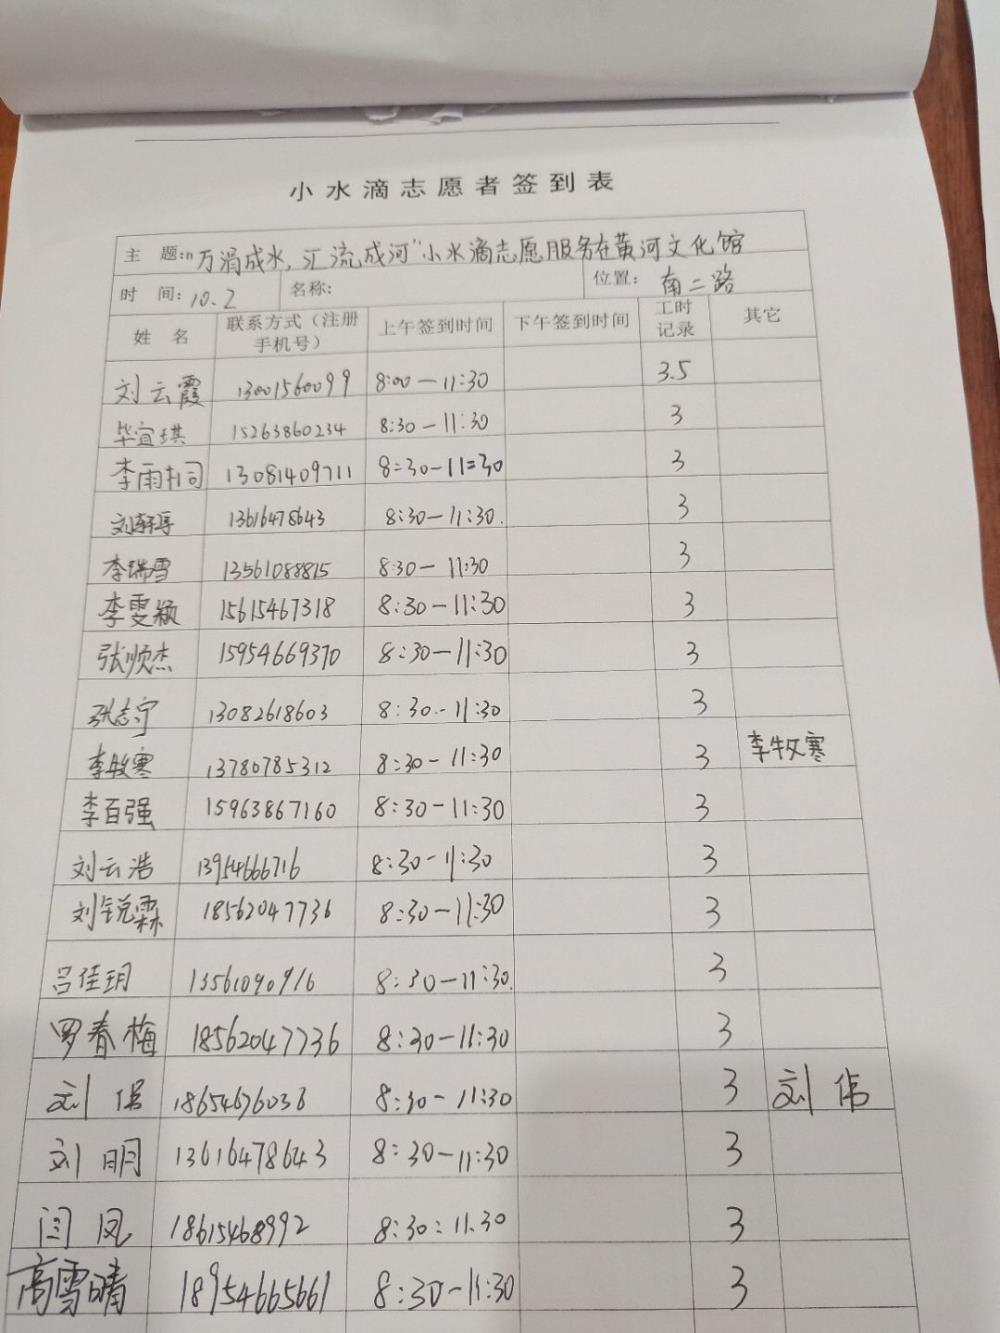 小水滴志愿者签到表
主 题："万涓成水,汇流成河"小水滴志愿服务在黄河文化馆
时 间：10.2 名称: 位置： 南二路
姓 名 联系方式（注册手机号） 上午签到时间 下午签到时间 工时记录 其它
刘云霞 13001560099 8:00—11:30 3.5
毕宜琪 15263860234 8:30—11:30 3
李雨轩 13081409711 8:30-11:30 3
刘轩 13616478643 8:30—11:30 3
李瑞雪 13561088815 8:30—11:30 3
李雯颖 15615467318 8:30-11:30 3
张顺杰 15954669370 8:30-11:30 3
张志宁 13082618603 8:30--11:30 3
李牧寒 13780785312 8:30-11:30 3 李牧寒
李百强 15963867160 8:30-11:30 3
刘云浩 13954666716 8:30-11:30 3
刘锐霖 18562047736 8:30-11:30 3
吕佳玥 13561090916 8:30—11:30. 3
罗春梅 18562047736 8:30-11:30 3
刘伟 18654676036 8:30-11:30 3 刘伟
刘明 13616478643 8:30-11:30 3
闫凤 18615468992 8:30:11.30 3
高雪晴 18954665661 8:30-11:30 3